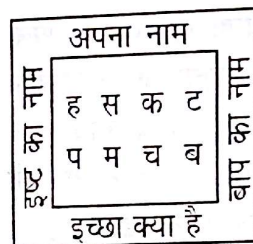 अपना नाम
इष्ट का नाम
ह स क ट
प म च ब
बाप का नाम
इच्छा क्या है